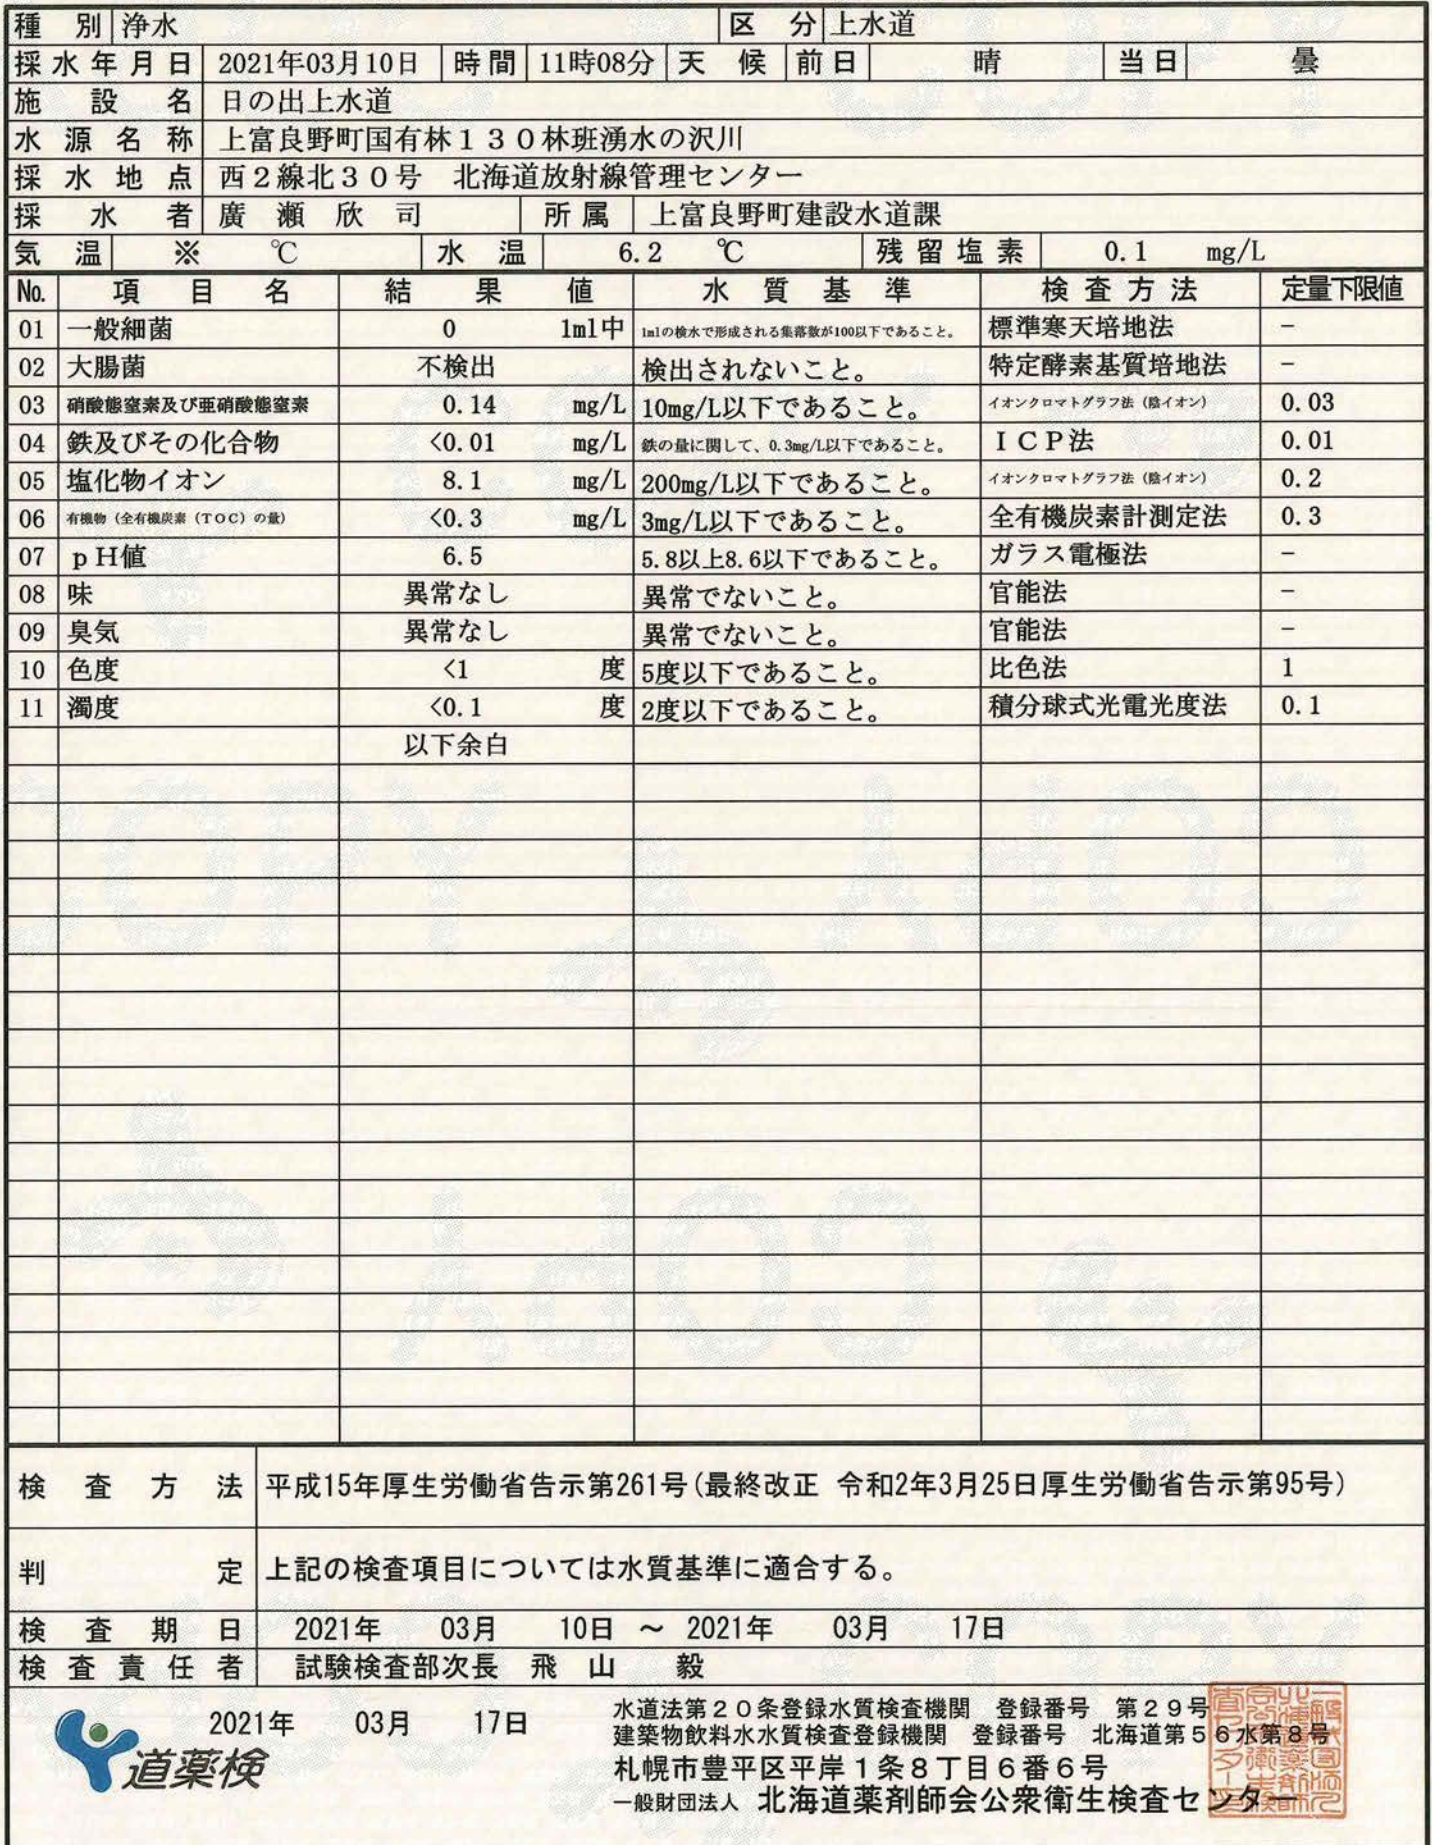 種別 浄水 区分 上水道
採水年月日 2021年03月10日 時間 11時08分 天候 前日 晴 当日 曇
施設名 日の出上水道
水源名称 上富良野町国有林１３０林班湧水の沢川
採水地点 西２線北３０号 北海道放射線管理センター
採水者 廣瀬欣司 所属 上富良野町建設水道課
気温 ※ ℃ 水温 6.2 ℃ 残留塩素 0.1 mg/L
No. 項目名 結果値 水質基準 検査方法 定量下限値
01 一般細菌 0 1ml中 1mlの検水で形成される集落数が100以下であること。 標準寒天培地法 −
02 大腸菌 不検出 検出されないこと。 特定酵素基質培地法 −
03 硝酸態窒素及び亜硝酸態窒素 0.14 mg/L 10mg/L以下であること。 イオンクロマトグラフ法（陰イオン） 0.03
04 鉄及びその化合物 <0.01 mg/L 鉄の量に関して、0.3mg/L以下であること。 ＩＣＰ法 0.01
05 塩化物イオン 8.1 mg/L 200mg/L以下であること。 イオンクロマトグラフ法（陰イオン） 0.2
06 有機物（全有機炭素（TOC）の量） <0.3 mg/L 3mg/L以下であること。 全有機炭素計測定法 0.3
07 ｐH値 6.5 5.8以上8.6以下であること。 ガラス電極法 −
08 味 異常なし 異常でないこと。 官能法 −
09 臭気 異常なし 異常でないこと。 官能法 −
10 色度 <1 度 5度以下であること。 比色法 1
11 濁度 <0.1 度 2度以下であること。 積分球式光電光度法 0.1
以下余白
検査方法 平成15年厚生労働省告示第261号(最終改正 令和2年3月25日厚生労働省告示第95号)
判定 上記の検査項目については水質基準に適合する。
検査期日 2021年 03月 10日 ～ 2021年 03月 17日
検査責任者 試験検査部次長 飛山 毅
2021年 03月 17日
水道法第２０条登録水質検査機関 登録番号 第２９号
建築物飲料水水質検査登録機関 登録番号 北海道第５６水第８号
札幌市豊平区平岸１条８丁目６番６号
一般財団法人 北海道薬剤師会公衆衛生検査センター
道薬検
COPY
COPY
COPY